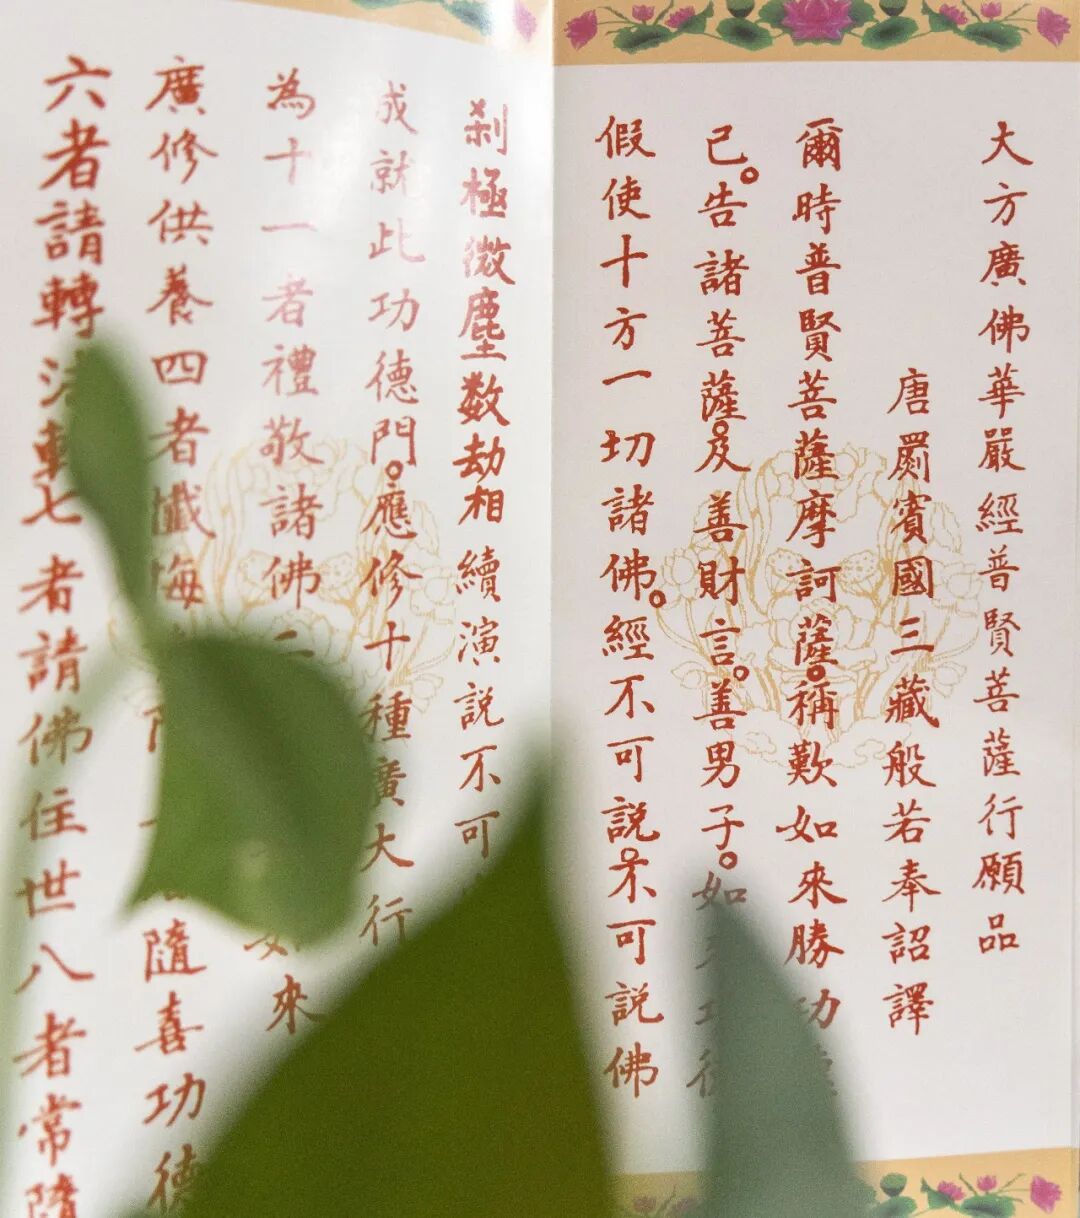 大方廣佛華嚴經普賢菩薩行願品
唐罽賓國三藏般若奉詔譯
爾時普賢菩薩摩訶薩。稱歎如來勝功
已。告諸菩薩。及善財言。善男子。如
假使十方一切諸佛。經不可說。不可說佛
剎極微塵数劫相續演說不可
成就此功德門。應修十種廣大行
為十一者禮敬諸佛二來
廣修供養四者懺悔隨喜功德
六者請轉七者請佛住世八者常隨